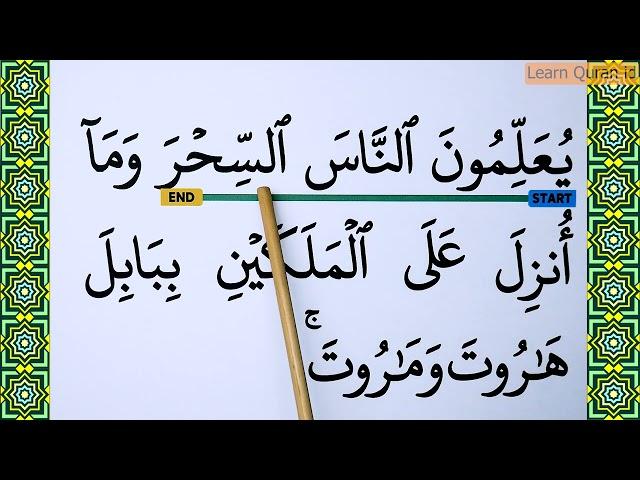 Learn Quran id
يُعَلِّمُونَ ٱلنَّاسَ ٱلسِّحْرَ وَمَآ
START
END
أُنزِلَ عَلَى ٱلْمَلَكَيْنِ بِبَابِلَ
هَٰرُوتَ وَمَٰرُوتَ ۚ